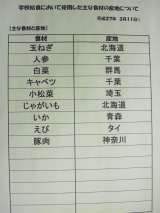 学校給食において使用した主な食材の産地について
平成27年 3月11日
【主な食材の産地】
食材 産地
玉ねぎ 北海道
人参 千葉
白菜 群馬
キャベツ 千葉
小松菜 埼玉
じゃがいも 北海道
いか 青森
えび タイ
豚肉 神奈川